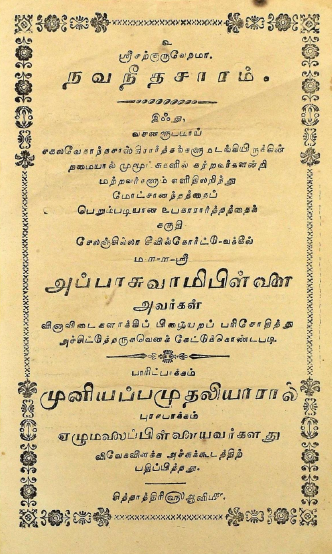 உ
ஸ்ரீசற்குருவேநம.
நவநீதசாரம்.
இஃது,
வசனரூபமாய்
சகலவேதாந்தசாஸ்திரார்த்தங்களு மடங்கியிருக்கின்
றமையால் முமூட்சுகளில் கற்றவர்களன்றி
மற்றவர்களும் எளிதிலறிந்து
மோட்சானந்தத்தைப்
பெறும்படியான உபகாரார்த்தத்தைக்
கருதி
சேலஞ்சில்லா சிவில்கோர்ட்டு-வக்கீல்
ம-ா-ா-ஸ்ரீ
அப்பாசுவாமிபிள்ளை
அவர்கள்
வினாவிடைகளாக்கிப் பிழையறப் பரிசோதித்து
அச்சிட்டுத்தருகவெனக் கேட்டுக்கொண்டபடி.
பாரிட்பாக்கம்
முனியப்பமுதலியாரால்
புரசபாக்கம்
ஏழுமலைப்பிள்ளையவர்களது
விவேகவிளக்க அச்சுக்கூடத்திற்
பதிப்பித்தது.
சித்தாத்திரிஹு ஆவணிமீ.